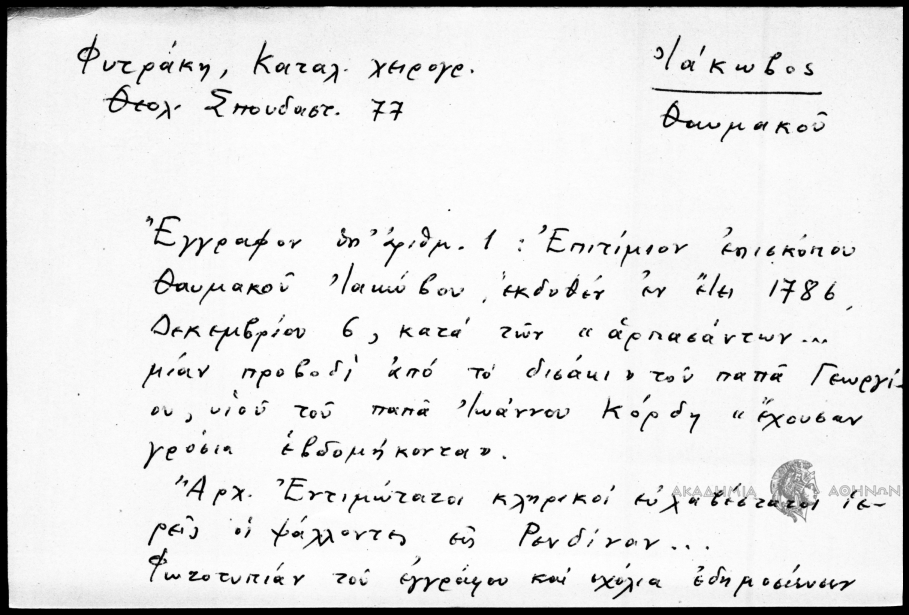 Φυτράκη, Καταλ. χειρογρ.
Θεολ. Σπουδαστ. 77
Ἰάκωβος
Θαυμακοῦ
Ἔγγραφον ὑπ' ἀριθμ. 1 : Ἐπιτίμιον ἐπισκόπου
Θαυμακοῦ Ἰακώβου, ἐκδοθέν ἐν ἔτει 1786,
Δεκεμβρίου 6, κατά τῶν «ἁρπασάντων...
μίαν προβοδὶ ἀπό τό δισάκι» τοῦ παπᾶ Γεωργί-
ου, υἱοῦ τοῦ παπᾶ Ἰωάννου Κόρδη «ἔχουσαν
γρόσια ἑβδομήκοντα».
Ἀρχ. Ἐντιμώτατοι κληρικοί εὐλαβέστατοι ἱε-
ρεῖς οἱ ψάλλοντες εἰς Ρενδίναν...
Φωτοτυπίαν τοῦ ἐγγράφου καί σχόλια ἐδημοσίευσεν
ΑΚΑΔΗΜΙΑ ΑΘΗΝΩΝ